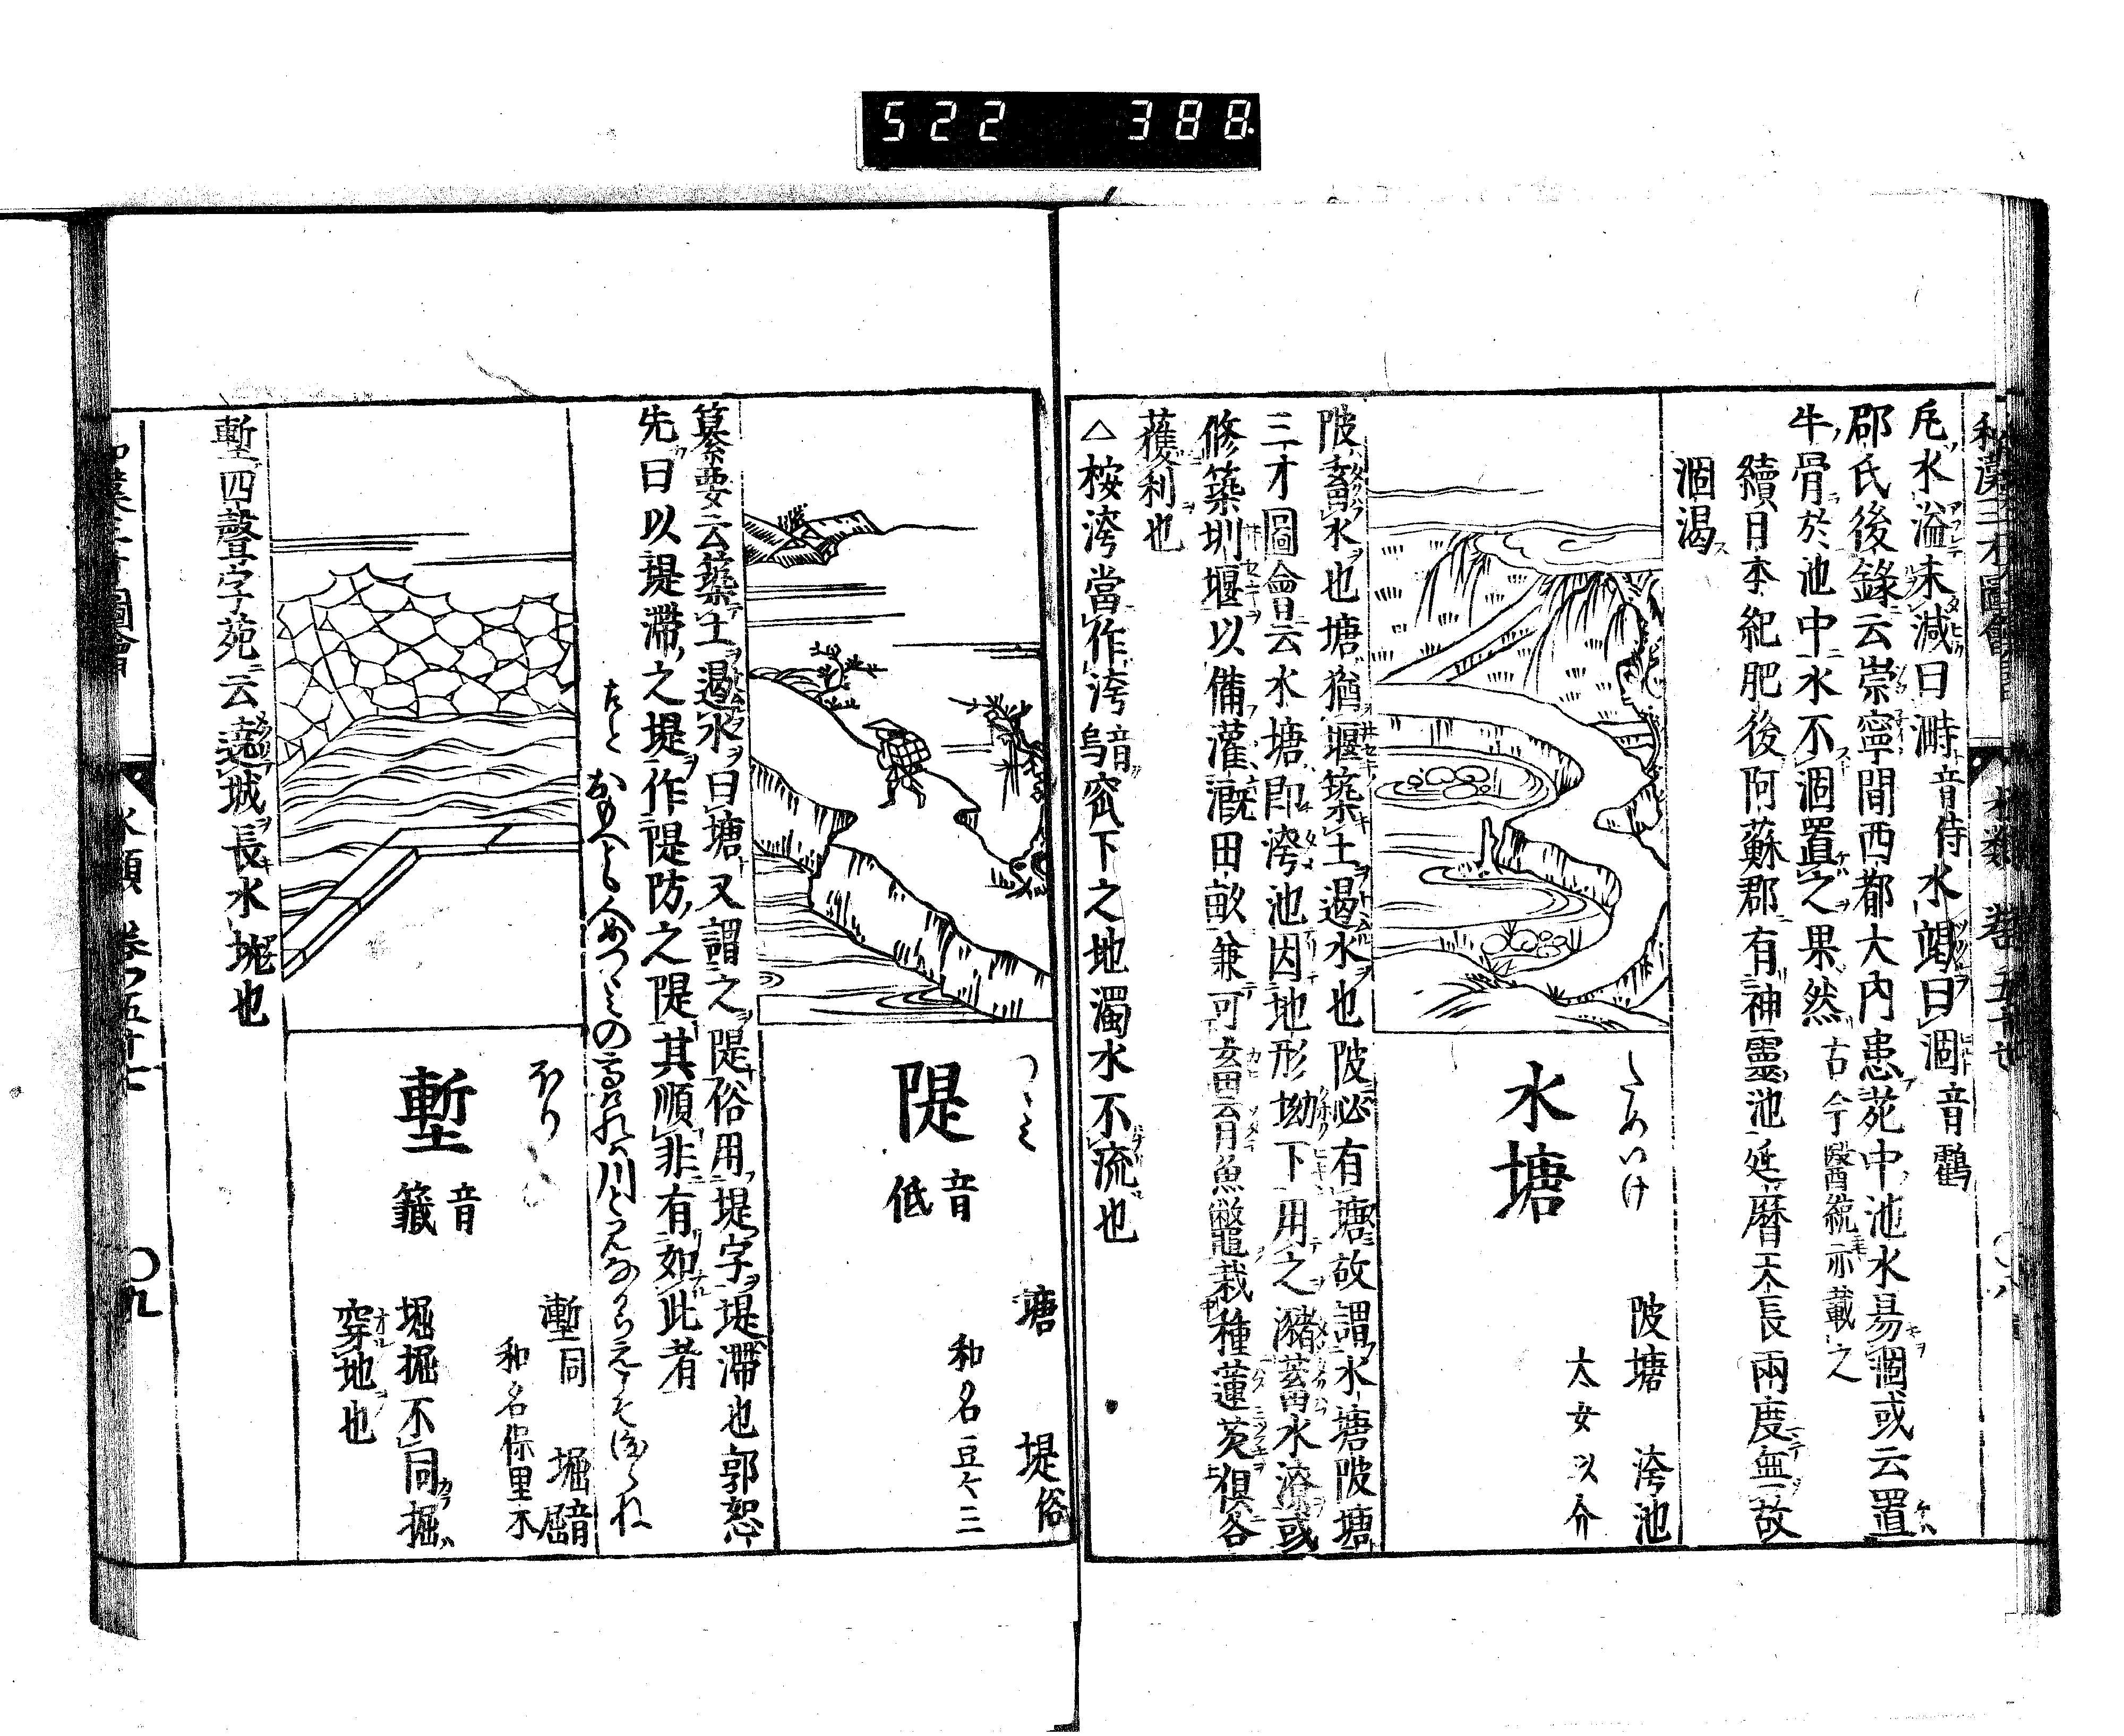 522 388
和漢三才圖會
水類 卷五十七
〇八
凡水溢未減曰㴓音侍水竭曰涸音鸖
郡氏後錄云崇寧間西都大内患苑中池水易涸或云置
牛骨於池中水不涸置之果然古今醫統亦載之
續日本紀肥後阿蘇郡有神靈池延曆天長兩度無故
涸渇
ためいけ
水塘
陂塘 洿池
太女以介
陂畜水也塘猶堰築土遏水也陂必有塘故謂水塘陂塘
三才圖會云水塘即洿池因地形坳下用之瀦蓄水潦或
修築圳堰以備灌漑田畝兼可畜育魚鼈栽種蓮芡俱各
獲利也
△桉洿當作洿音烏窊下之地濁水不流也
つゝみ
隄
音低
塘 堤俗
和名豆々三
纂要云築土遏水曰塘又謂之隄俗用堤字堤滯也郭恕
先曰以堤滯之堤作隄防之隄其順非有如此者
ほり
塹
音籤
壍同 堀音屈
和名保里木
堀掘不同掘
穿地也
塹四聲字苑云遶城長水坑也
水類 卷ノ五十七
〇九